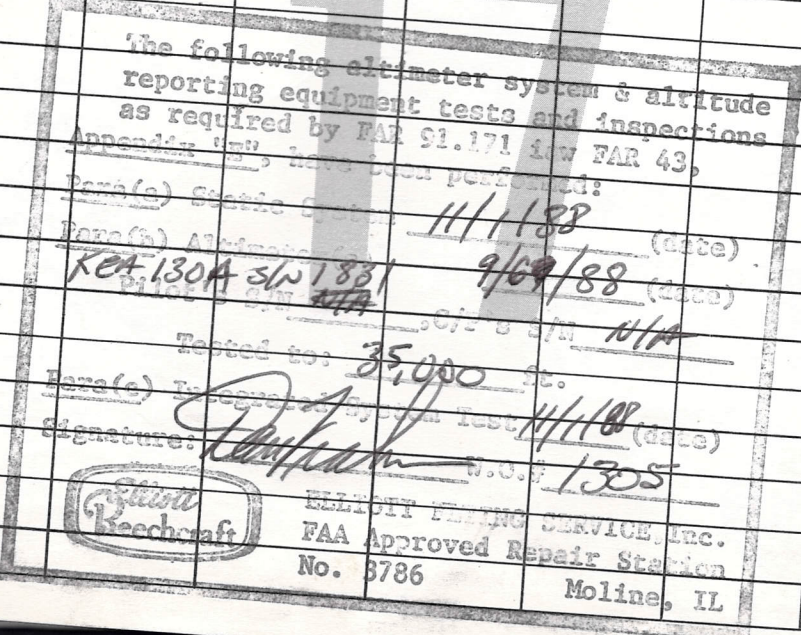 17
The following altimeter system & altitude
reporting equipment tests and inspections
as required by FAR 91.171 iaw FAR 43,
Appendix "E", have been performed:
Para(a) Static System 11/1/88 (date)
Para(b) Altimeter 9/69/88 (date)
KEA 130A S/N 1831
Pilot's S/N N/A , C/P's S/N N/A
Tested to: 35,000 ft.
Para(c) Integrated System Test 11/1/88 (date)
Signature: W.O.# 1305
Elliott
Beechcraft
ELLIOTT FLYING SERVICE, Inc.
FAA Approved Repair Station
No. 3786
Moline, IL